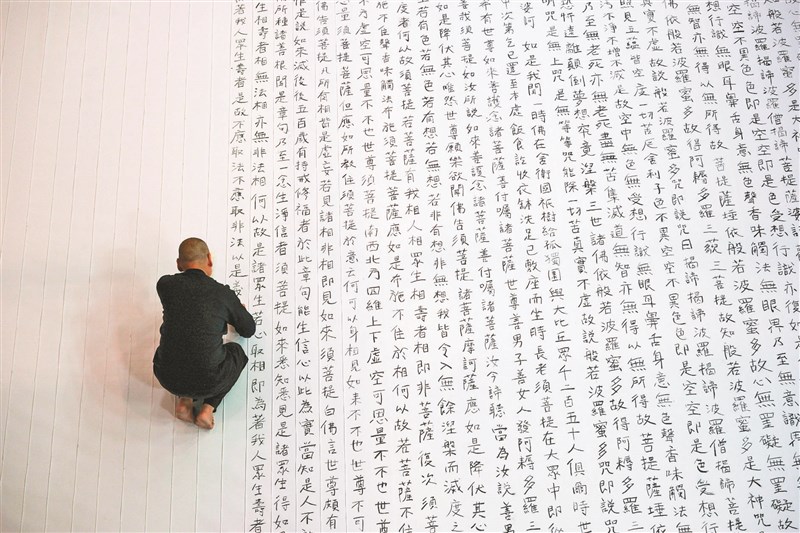 知般若波羅蜜多是大神
揭諦波羅揭諦波羅僧揭諦菩提薩婆訶
異空空不異色色即是空空即是色受想行識亦復如是
想行識無眼耳鼻舌身意無色聲香味觸法無眼界乃至無意識界
無智亦無得以無所得故菩提薩埵依般若波羅蜜多故心無罣礙無罣礙故
佛依般若波羅蜜多故得阿耨多羅三藐三菩提故知般若波羅蜜多是大神咒
真實不虛故說般若波羅蜜多咒即說咒曰揭諦揭諦波羅揭諦波羅僧揭諦菩提
照見五蘊皆空度一切苦厄舍利子色不異空空不異色色即是空空即是色受想行
污不淨不增不減是故空中無色無受想行識無眼耳鼻舌身意無色聲香味觸法無
乃至無老死亦無老死盡無苦集滅道無智亦無得以無所得故菩提薩埵依般
恐怖遠離顛倒夢想究竟涅槃三世諸佛依般若波羅蜜多故得阿耨多羅三
是無上咒是無等等咒能除一切苦真實不虛故說般若波羅蜜多咒即說咒
婆訶 如是我聞一時佛在舍衛國祇樹給孤獨園與大比丘眾千二百五十人俱爾時世
中次第乞已還至本處飯食訖收衣缽洗足已敷座而坐時長老須菩提在大眾中即從
希有世尊如來善護念諸菩薩善付囑諸菩薩世尊善男子善女人發阿耨多羅三
善哉須菩提如汝所說如來善護念諸菩薩善付囑諸菩薩汝今諦聽當為汝說善男
如是降伏其心唯然世尊願樂欲聞佛告須菩提諸菩薩摩訶薩應如是降伏其心
若有色若無色若有想若無想若非有想非無想我皆令入無餘涅槃而滅度之
度者何以故須菩提若菩薩有我相人相眾生相壽者相即非菩薩復次須菩
施不住聲香味觸法布施須菩提菩薩應如是布施不住於相何以故若菩薩不住
方虛空可思量不不也世尊須菩提南西北方四維上下虛空可思量不不也世尊
心量須菩提菩薩但應如所教住須菩提於意云何可以身相見如來不不也世尊不可
佛告須菩提凡所有相皆是虛妄若見諸相非相即見如來須菩提白佛言世尊頗有
是說如來滅後後五百歲有持戒修福者於此章句能生信心以此為實當知是人不於
所種諸善根聞是章句乃至一念生淨信者須菩提如來悉知悉見是諸眾生得如
生相壽者相無法相亦無非法相何以故是諸眾生若心取相即為著我人眾生壽者
著我人眾生壽者是故不應取法不應取非法以是義